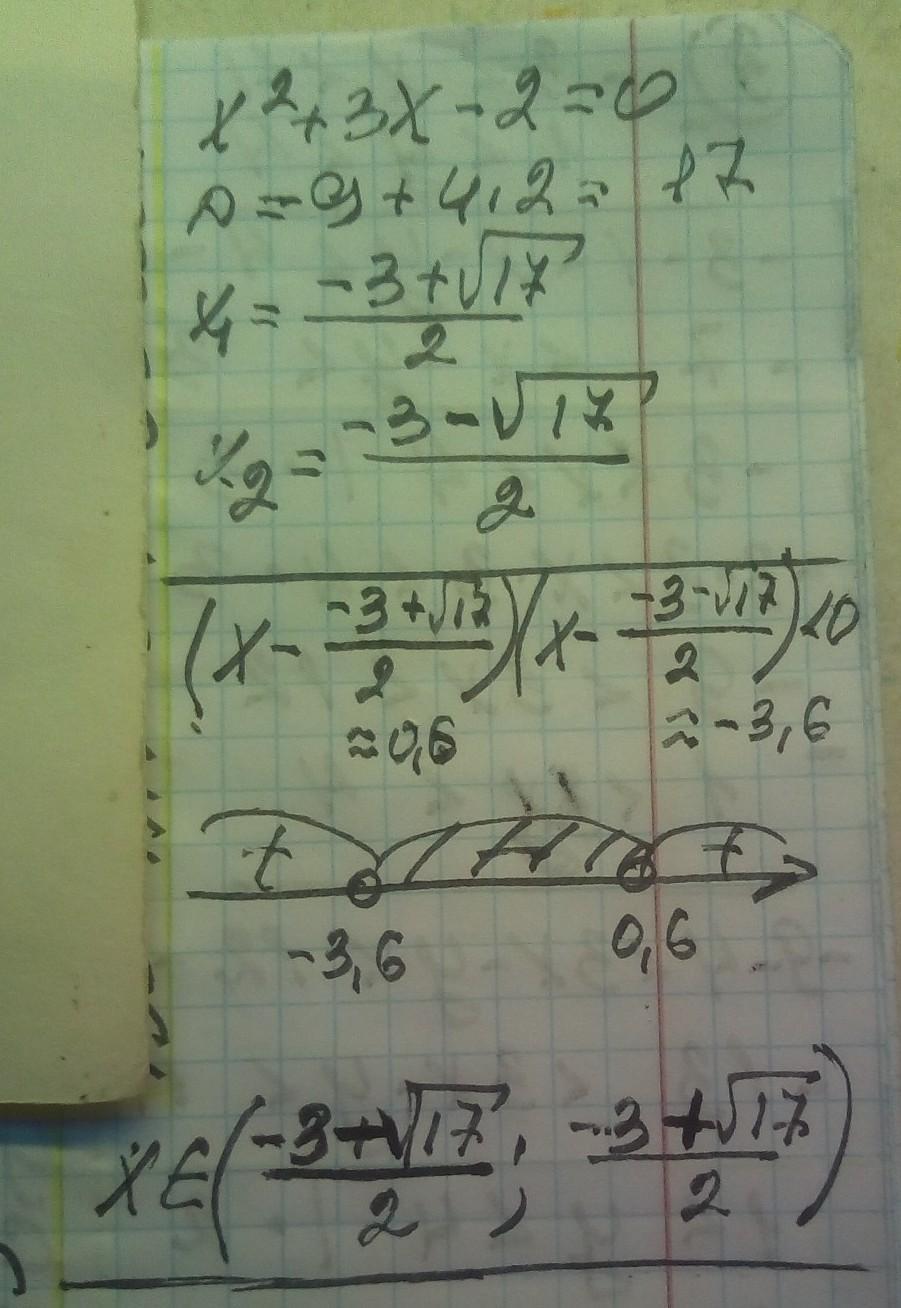 x² + 3x - 2 = 0
D = 9 + 4·2 = 17
x₁ = (-3 + √17)/2
x₂ = (-3 - √17)/2
(x - (-3 + √17)/2)(x - (-3 - √17)/2) < 0
≈ 0,6 ≈ -3,6
+ - +
-3,6 0,6
x ∈ ((-3 + √17)/2 ; (-3 + √17)/2)